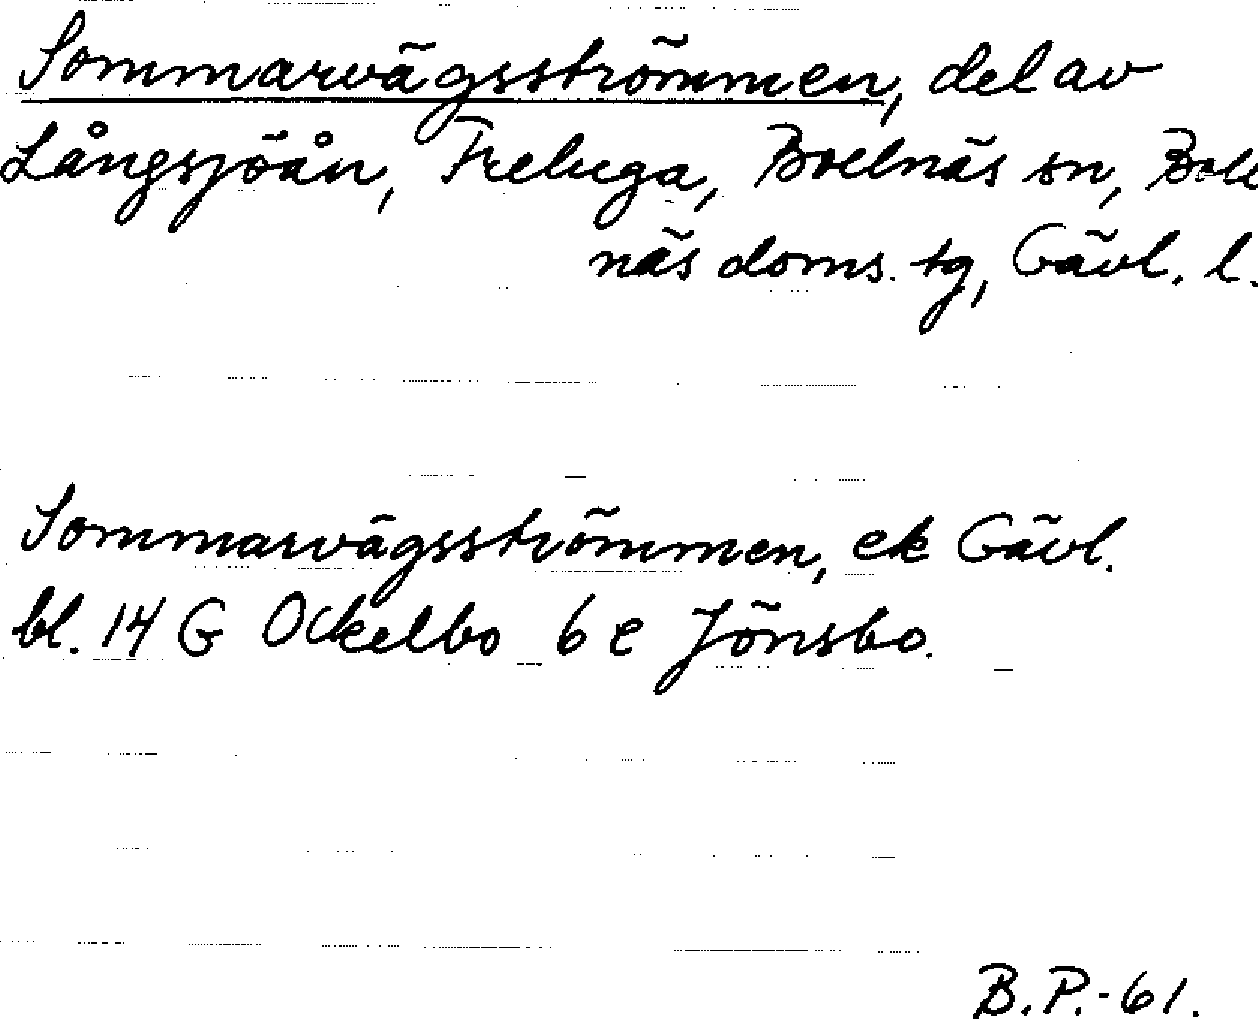 Sommarvägsströmmen, del av
Långsjöån, Freluga, Bollnäs sn, Boll
näs doms. tg, Gävl. l.
Sommarvägsströmmen, ek Gävl.
bl. 14 G Ockelbo 6 e Jönsbo.
B.P.-61.